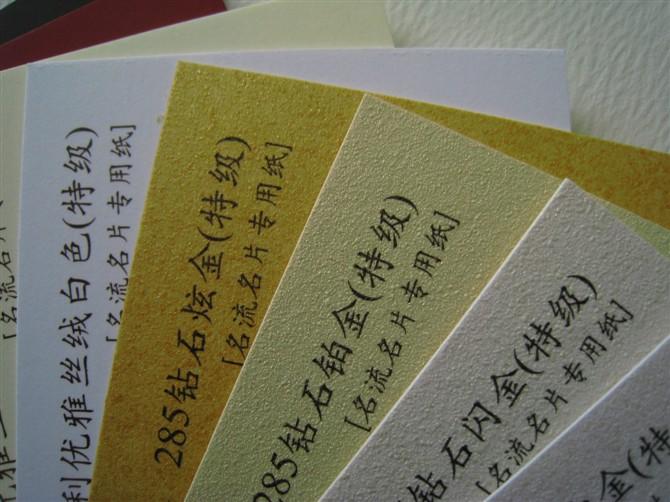 利优雅丝绒白色(特级)
[名流名片专用纸]
285钻石炫金(特级)
[名流名片专用纸]
285钻石铂金(特级)
[名流名片专用纸]
钻石闪金(特级)
[名流名片专用纸]
金(特
[名流名
雅